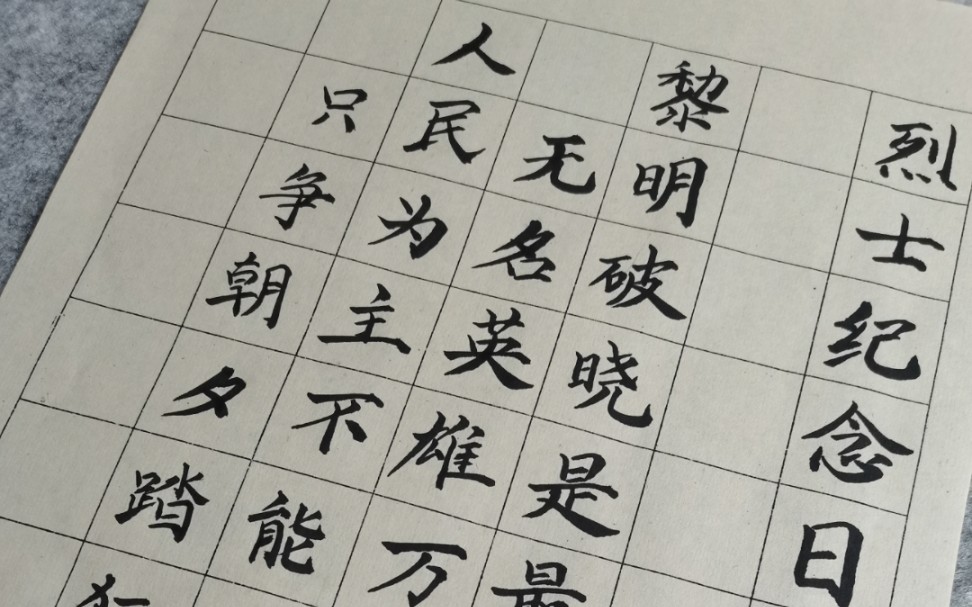 烈士纪念日
黎明破晓是最
无名英雄万
人民为主不能
只争朝夕踏